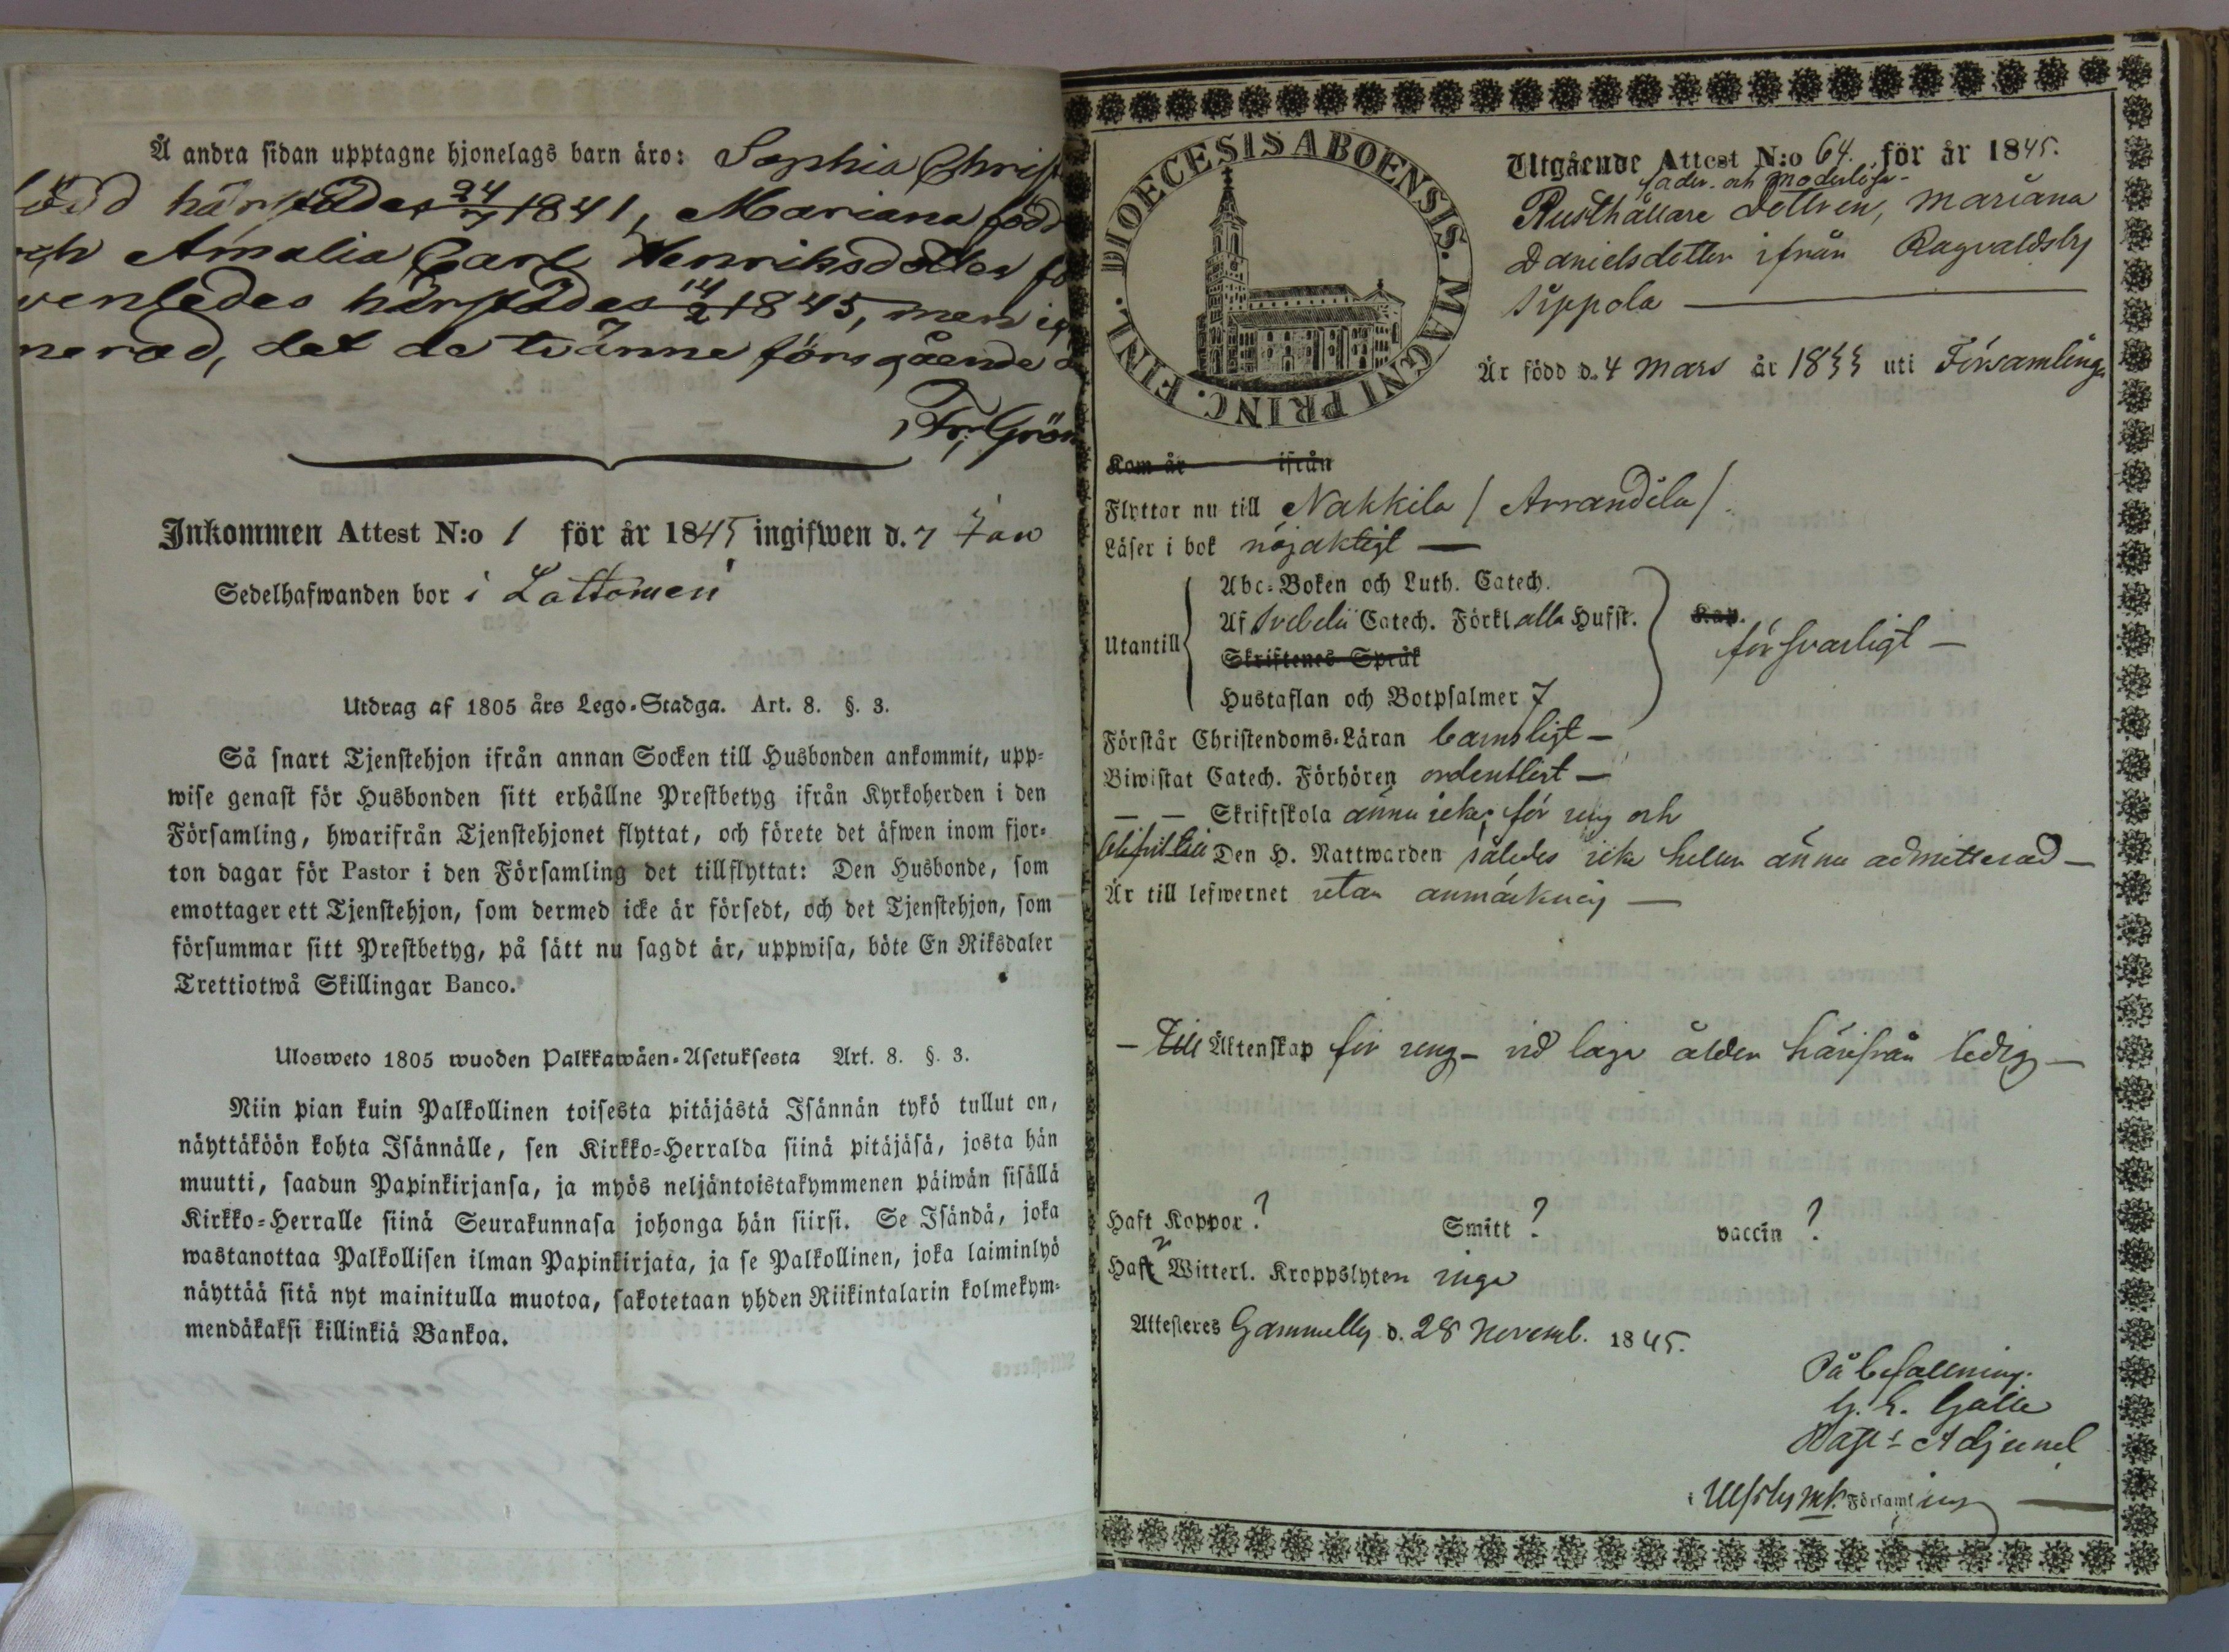 Å andra sidan upptagne hjonelags barn äro: Sophia Christ
född härstädes 24/7 1841, Mariana född
och Amalia Carl Henriksdotter fö
venledes härstädes 14/2 1845, men
nerad, det de tvänne föregående
Fr. Grön
Inkommen Attest N:o 1 för år 1845 ingifwen d. 7 Jan
Sedelhafwanden bor i Lattomeri
Utdrag af 1805 års Lego-Stadga. Art. 8. §. 3.
Så snart Tjenstehjon ifrån annan Socken till Husbonden ankommit, upp-
wise genast för Husbonden sitt erhållne Prestbetyg ifrån Kyrkoherden i den
Församling, hwarifrån Tjenstehjonet flyttat, och förete det äfwen inom fjor-
ton dagar för Pastor i den Församling det tillflyttat: Den Husbonde, som
emottager ett Tjenstehjon, som dermed icke är försedt, och det Tjenstehjon, som
försummar sitt Prestbetyg, på sätt nu sagdt är, uppwisa, böte En Riksdaler
Trettiotwå Skillingar Banco.
Ulosweto 1805 wuoden Palkkawäen-Asetuksesta Art. 8. §. 3.
Niin pian kuin Palkollinen toisesta pitäjästä Isännän tykö tullut on,
näyttäköön kohta Isännälle, sen Kirkko-Herralda siinä pitäjäsä, josta hän
muutti, saadun Papinkirjansa, ja myös neljäntoistakymmenen päiwän sisällä
Kirkko-Herralle siinä Seurakunnasa johonga hän siirsi. Se Isändä, joka
wastanottaa Palkollisen ilman Papinkirjata, ja se Palkollinen, joka laiminlyö
näyttää sitä nyt mainitulla muotoa, sakotetaan yhden Riikintalarin kolmekym-
mendäkaksi killinkiä Bankoa.
DIOECESIS ABOENSIS. MAGNI PRINC. FINL.
Utgående Attest N:o 64. för år 1845.
fader- och moderlösa
Rusthållare Dottren, Mariana
Danielsdotter ifrån Ragvaldsby
Sippola
Är född d. 4 Mars år 1833 uti Församlingen
Kom år ifrån
Flyttar nu till Nakkila / Arrandila /.
Läser i bok nöjaktigt
Abc-Boken och Luth. Catech.
Af Svebelii Catech. Förkl. alla Hufst.
Kap.
Utantill
Skriftenes Språk
försvarligt
Hustaflan och Botpsalmer 7
Förstår Christendoms-Läran barnsligt
Biwistat Catech. Förhören ordentligt
Skriftskola ännu icke, för ung och
Den H. Nattwarden således icke heller ännu admitterad
Är till lefwernet utan anmärkning
Till Äktenskap för ung - vid laga ålder härifrån ledig
Haft Koppor ? Smitt ? vaccin ?
Haft Witterl. Kroppslyten inga
Attesteres Gammelby d. 28 Novemb. 1845.
På befallning.
G. E. Galle
Past: Adjunct
i Ulfsby mk. Församling